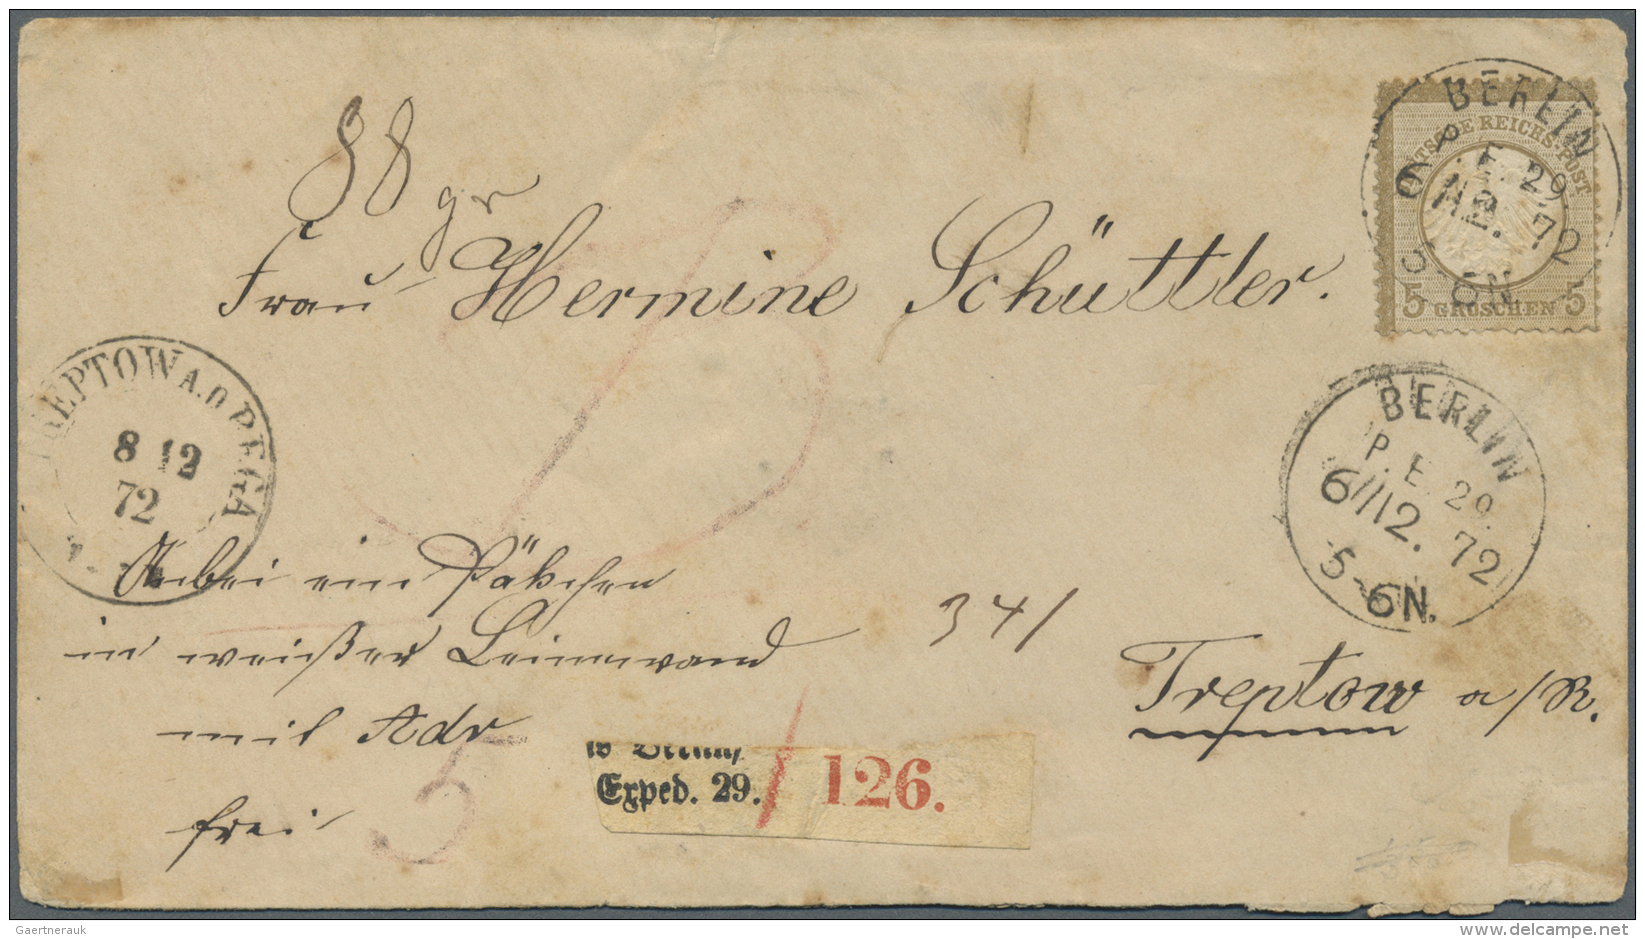 88 gr
Frau Hermine Schüttler.
DEUTSCHE REICHS-POST
5 GROSCHEN 5
BERLIN
P. E. 29.
6/12. 72
5-6N.
BERLIN
P. E. 29.
6/12. 72
5-6N.
TREPTOW A.D REGA
8 12
72
Anbei ein Päkchen
in weißer Leinewand
mit Adr
frei
5
341
Treptow a/R.
Exped. 29. 126.
Gaertnerauk
delcampe.net